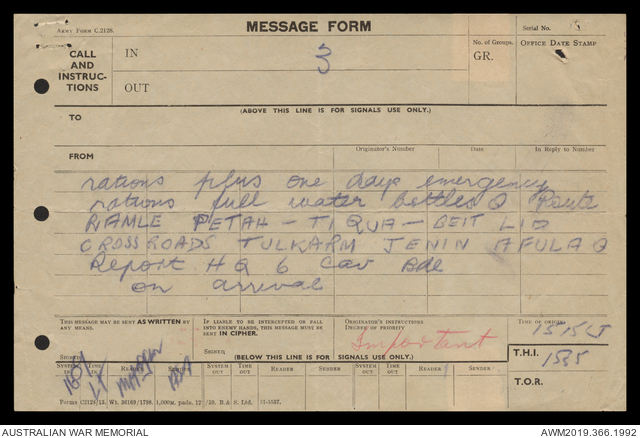 ARMY FORM C.2128.
MESSAGE FORM
Serial No.
CALL AND INSTRUC- TIONS
IN
3
No. of Groups.
GR.
OFFICE DATE STAMP
OUT
(ABOVE THIS LINE IS FOR SIGNALS USE ONLY.)
TO
FROM
Originator's Number
Date
In Reply to Number
rations plus one days emergency
rations full water bottles Q Route
RAMLE PETAH-TIQUA-BEIT LID
CROSSROADS TULKARM JENIN AFULA Q
Report HQ 6 Cav Bde
on arrival
THIS MESSAGE MAY BE SENT AS WRITTEN BY ANY MEANS.
IF LIABLE TO BE INTERCEPTED OR FALL INTO ENEMY HANDS, THIS MESSAGE MUST BE SENT IN CIPHER.
ORIGINATOR'S INSTRUCTIONS
DEGREE OF PRIORITY
Important
TIME OF ORIGIN
1515
SIGNED
SIGNED
(BELOW THIS LINE IS FOR SIGNALS USE ONLY.)
T.H.I.
1535
SYSTEM OUT
TIME OUT
READER
SENDER
SYSTEM OUT
TIME OUT
READER
SENDER
SYSTEM OUT
TIME OUT
READER
SENDER
T.O.R.
Forms C2128/13.
1,000m. pads.
B.& S. Ltd.
51-5537.
AUSTRALIAN WAR MEMORIAL
AWM2019.366.1992